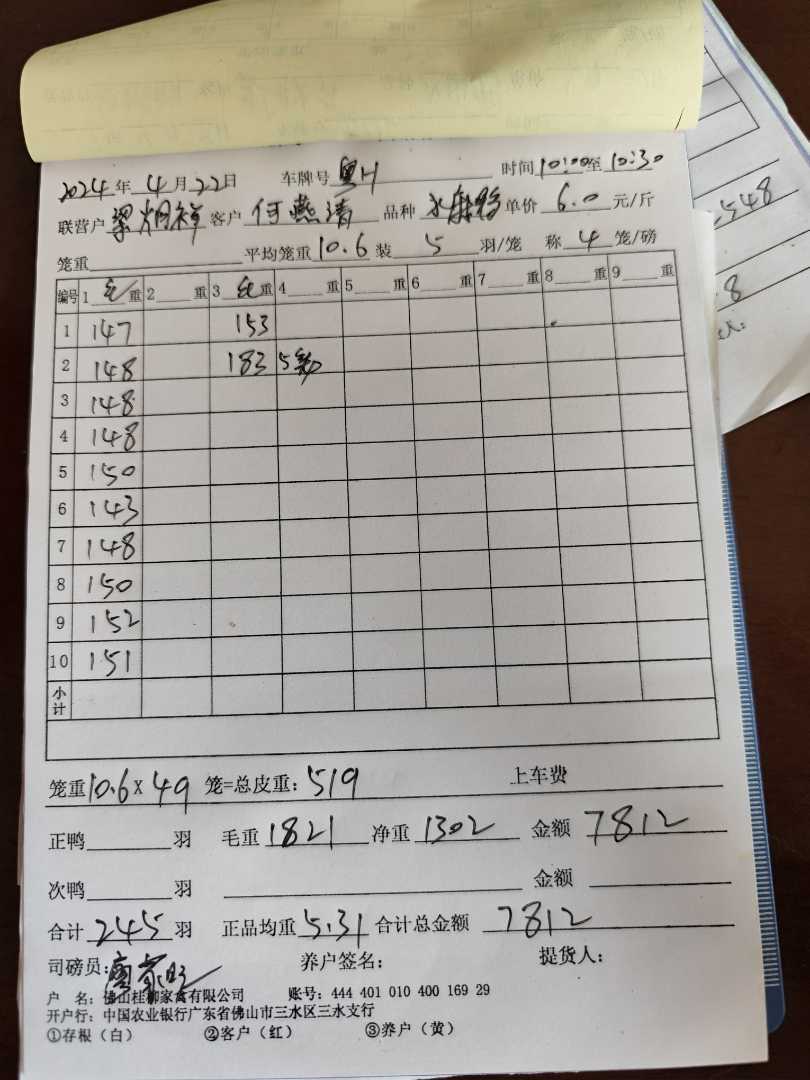 2024年 4月22日 车牌号 粤H 时间10:00至10:30
联营户 梁炳祥 客户 何燕清 品种 水麻鸭 单价 6.0 元/斤
笼重 平均笼重10.6 装 5 羽/笼 称 4 笼/磅
编号 1 毛重 2 重 3 毛重 4 重 5 重 6 重 7 重 8 重 9 重
1 147 153
2 148 183 5笼
3 148
4 148
5 150
6 143
7 148
8 150
9 152
10 151
小计
笼重10.6×49 笼=总皮重:519 上车费
正鸭 羽 毛重 1821 净重 1302 金额 7812
次鸭 羽 金额
合计 245 羽 正品均重5.31 合计总金额 7812
司磅员: 养户签名: 提货人:
户 名: 佛山桂柳家禽有限公司 账号: 444 401 010 400 169 29
开户行: 中国农业银行广东省佛山市三水区三水支行
①存根(白) ②客户(红) ③养户(黄)